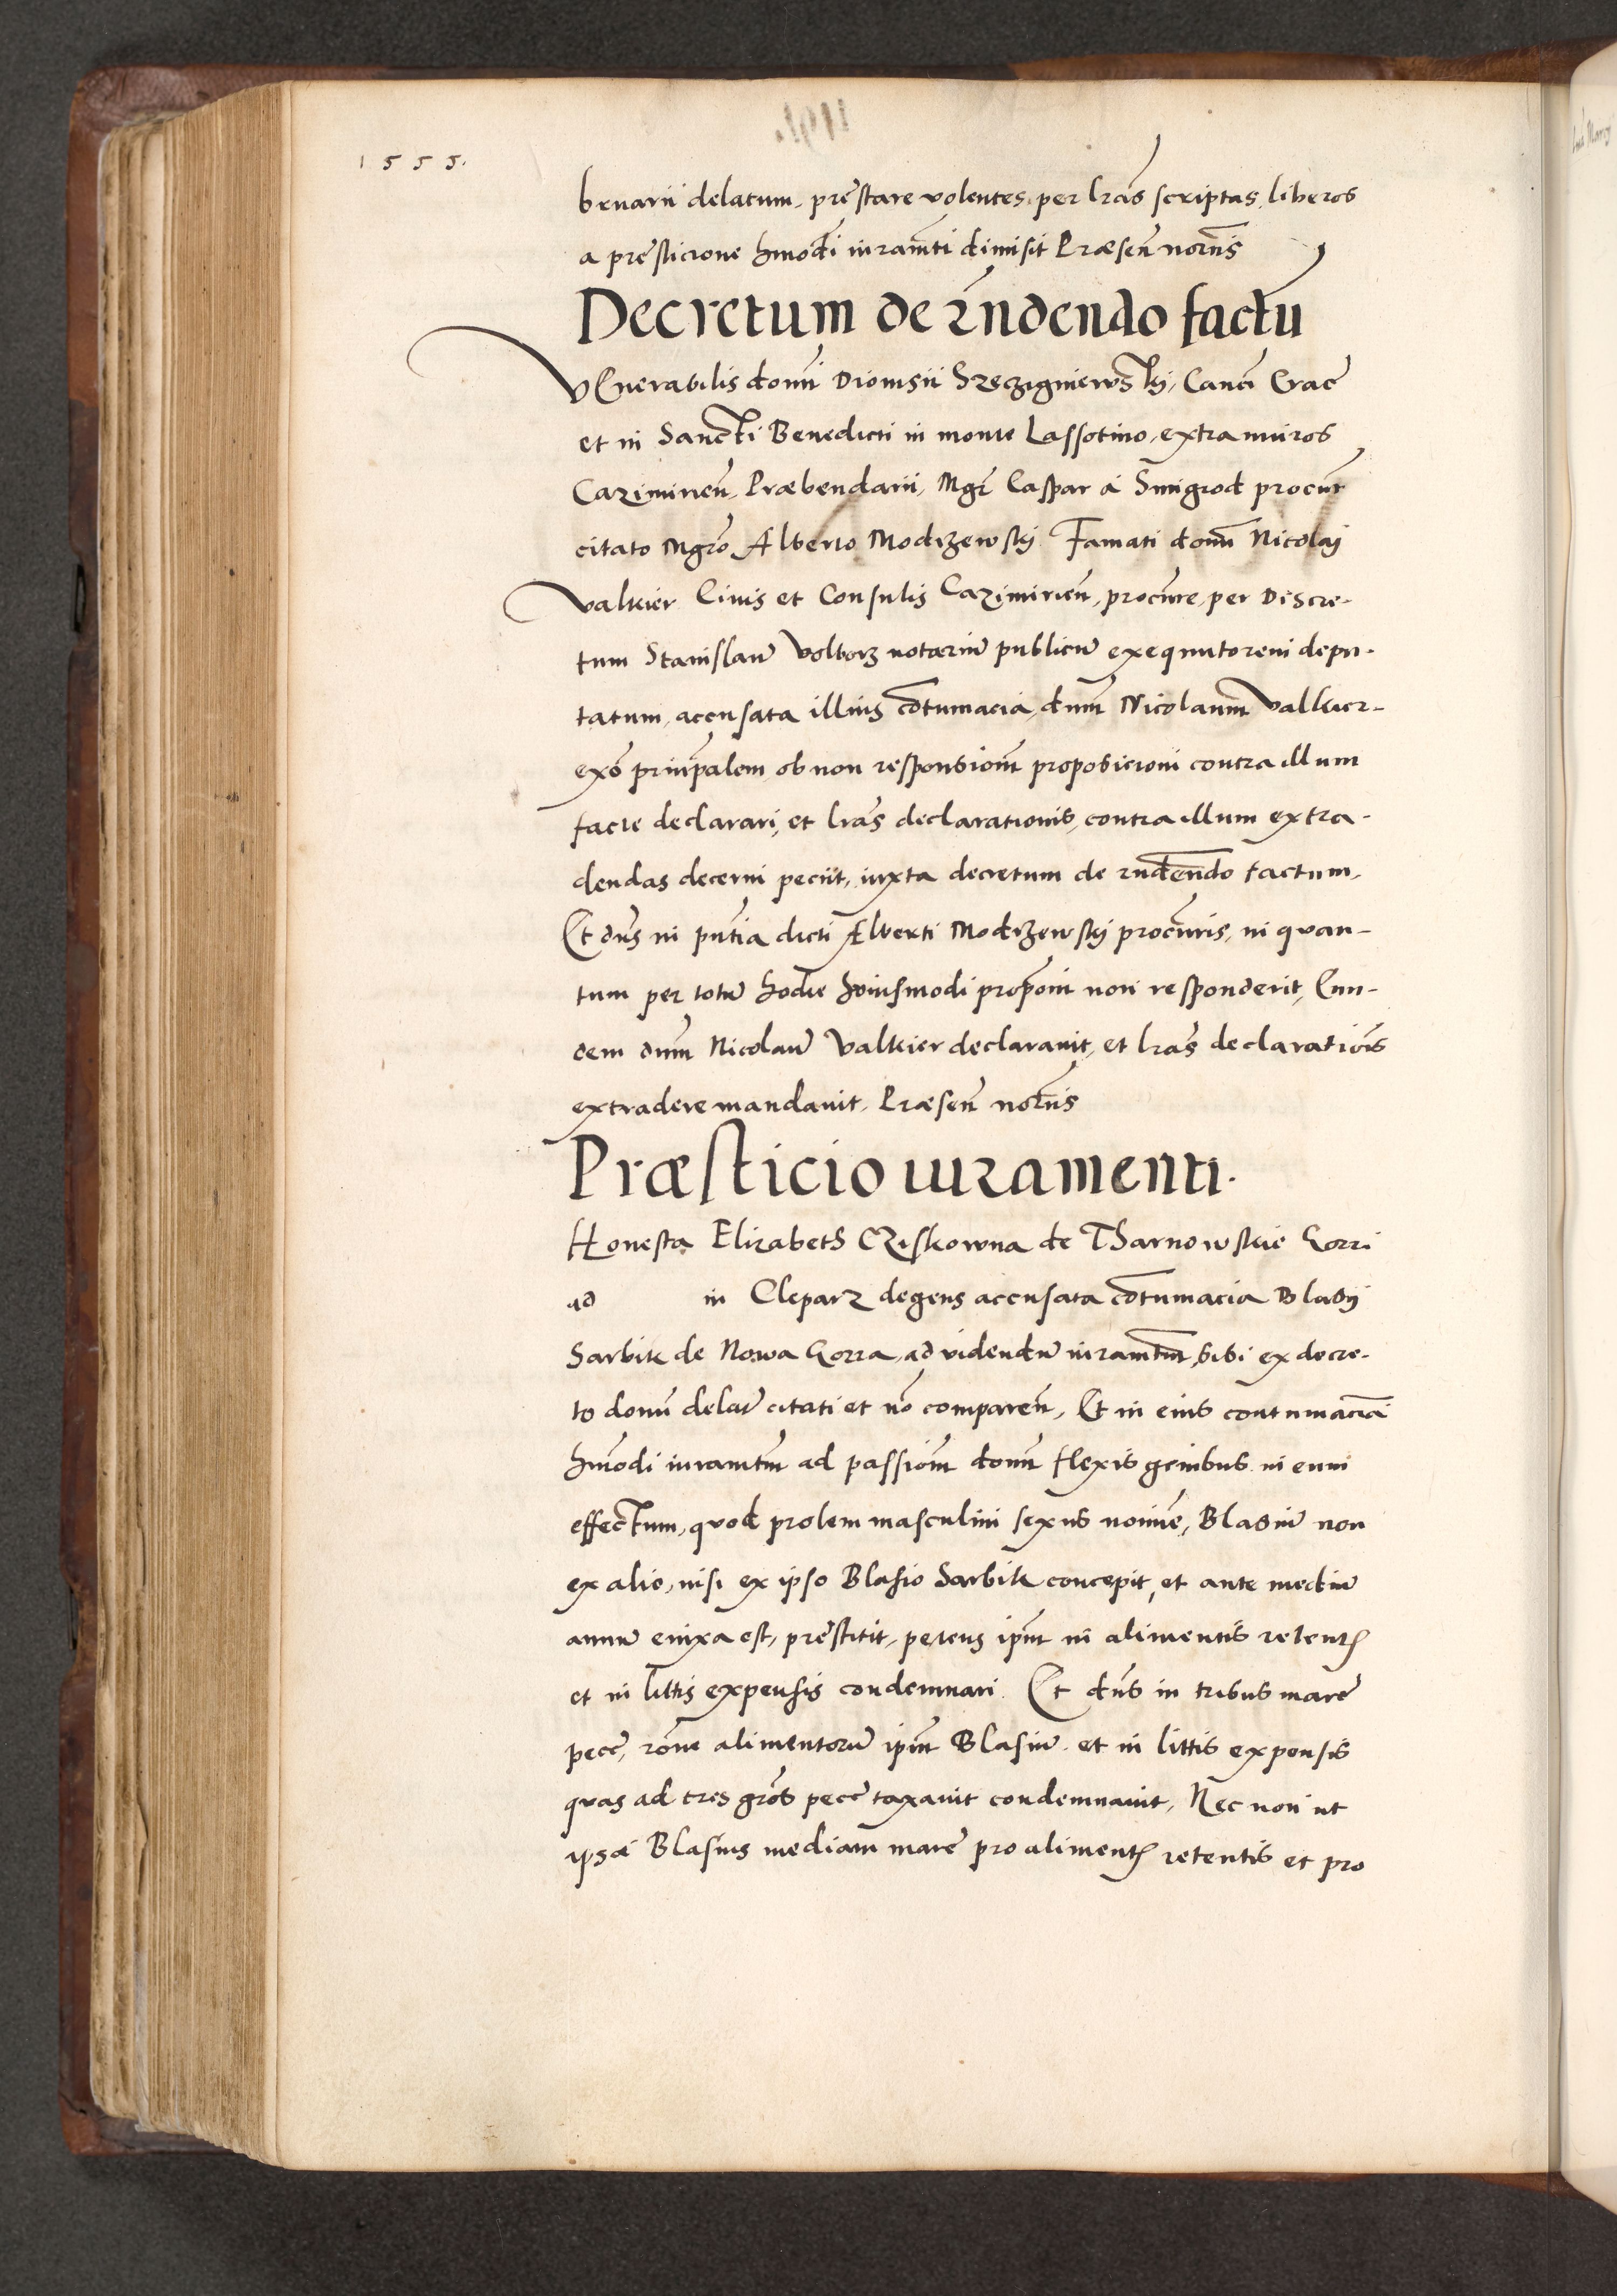 1555.
benarii delatum, prestare volentes, per lr̃as scriptas, liberos
a presticione hmõdi iuramti dimisit Præseñ nor̃iis
Decretum de rñdendo factũ
VEnerabilis domñi Dionisii Szecзigniewski, Canci Crac̃
et in Sancti Benedicti in monte Lassotino, extra muros
Cazimirieñ, Præbendarii, Mgr̃ Caspar a Smigrod procur̃
citato Mgr̃o Alberto Modrzewski Famati domñ Nicolaj
Valkier Civis et Consulis Cazimirieñ, procur̃e, per Discre-
tum Stanislaũ Volborz notariũ publicũ exequutorem depu-
tatum, accusata illius cõtumacia, dnum Nicolaum Valkier-
exõ prinpalem, ob non responsionm̃ proposicioni contra illum
facte declarari, et lr̃as declarationis, contra illum extra-
dendas decerni peciit, iuxta decretum de rñdendo factum,
Et dñs in pñtia dicti Alberti Modrzewski procur̃is, in quan-
tum per totũ hodie huiusmodi propõni non responderit, Eun-
dem dnm̃ Nicolaũ Valkier declaravit, et lr̃as declarationis̃
extradere mandavit, Præseñ nor̃iis
Præsticio iuramenti.
Honesta Elizabeth Cziskowna de Tharnowskie Gorri
ad in Cleparz degens accusata cõtumacia Blasij
Sarbik de Nowa Gorra, ad videndũ iuramtm̃, sibi ex decre-
to domñ delatũ citati et nõ compareñ, Et in eius contumaciã
hmõdi iuramtm̃ ad passionm̃ domñ flexis genibus in eum
effectum, quod prolem masculini sexus nomĩe, Blasiũ non
ex alio, nisi ex ipso Blasio Sarbik concepit, et ante mediũ
annũ enixa est, prestitit, petens ipm̃ in alimentis retentꝭ
et in littis expensis condemnari. Et dñs in tribus marc̃
pecc̃, rõne alimentorũ ipm̃ Blasiũ, et in littis expensis
quas ad tres gros̃ pecc̃ taxavit condemnavit, Nec non ut
ipse Blasius mediam marc̃ pro alimentꝭ retentis et pro